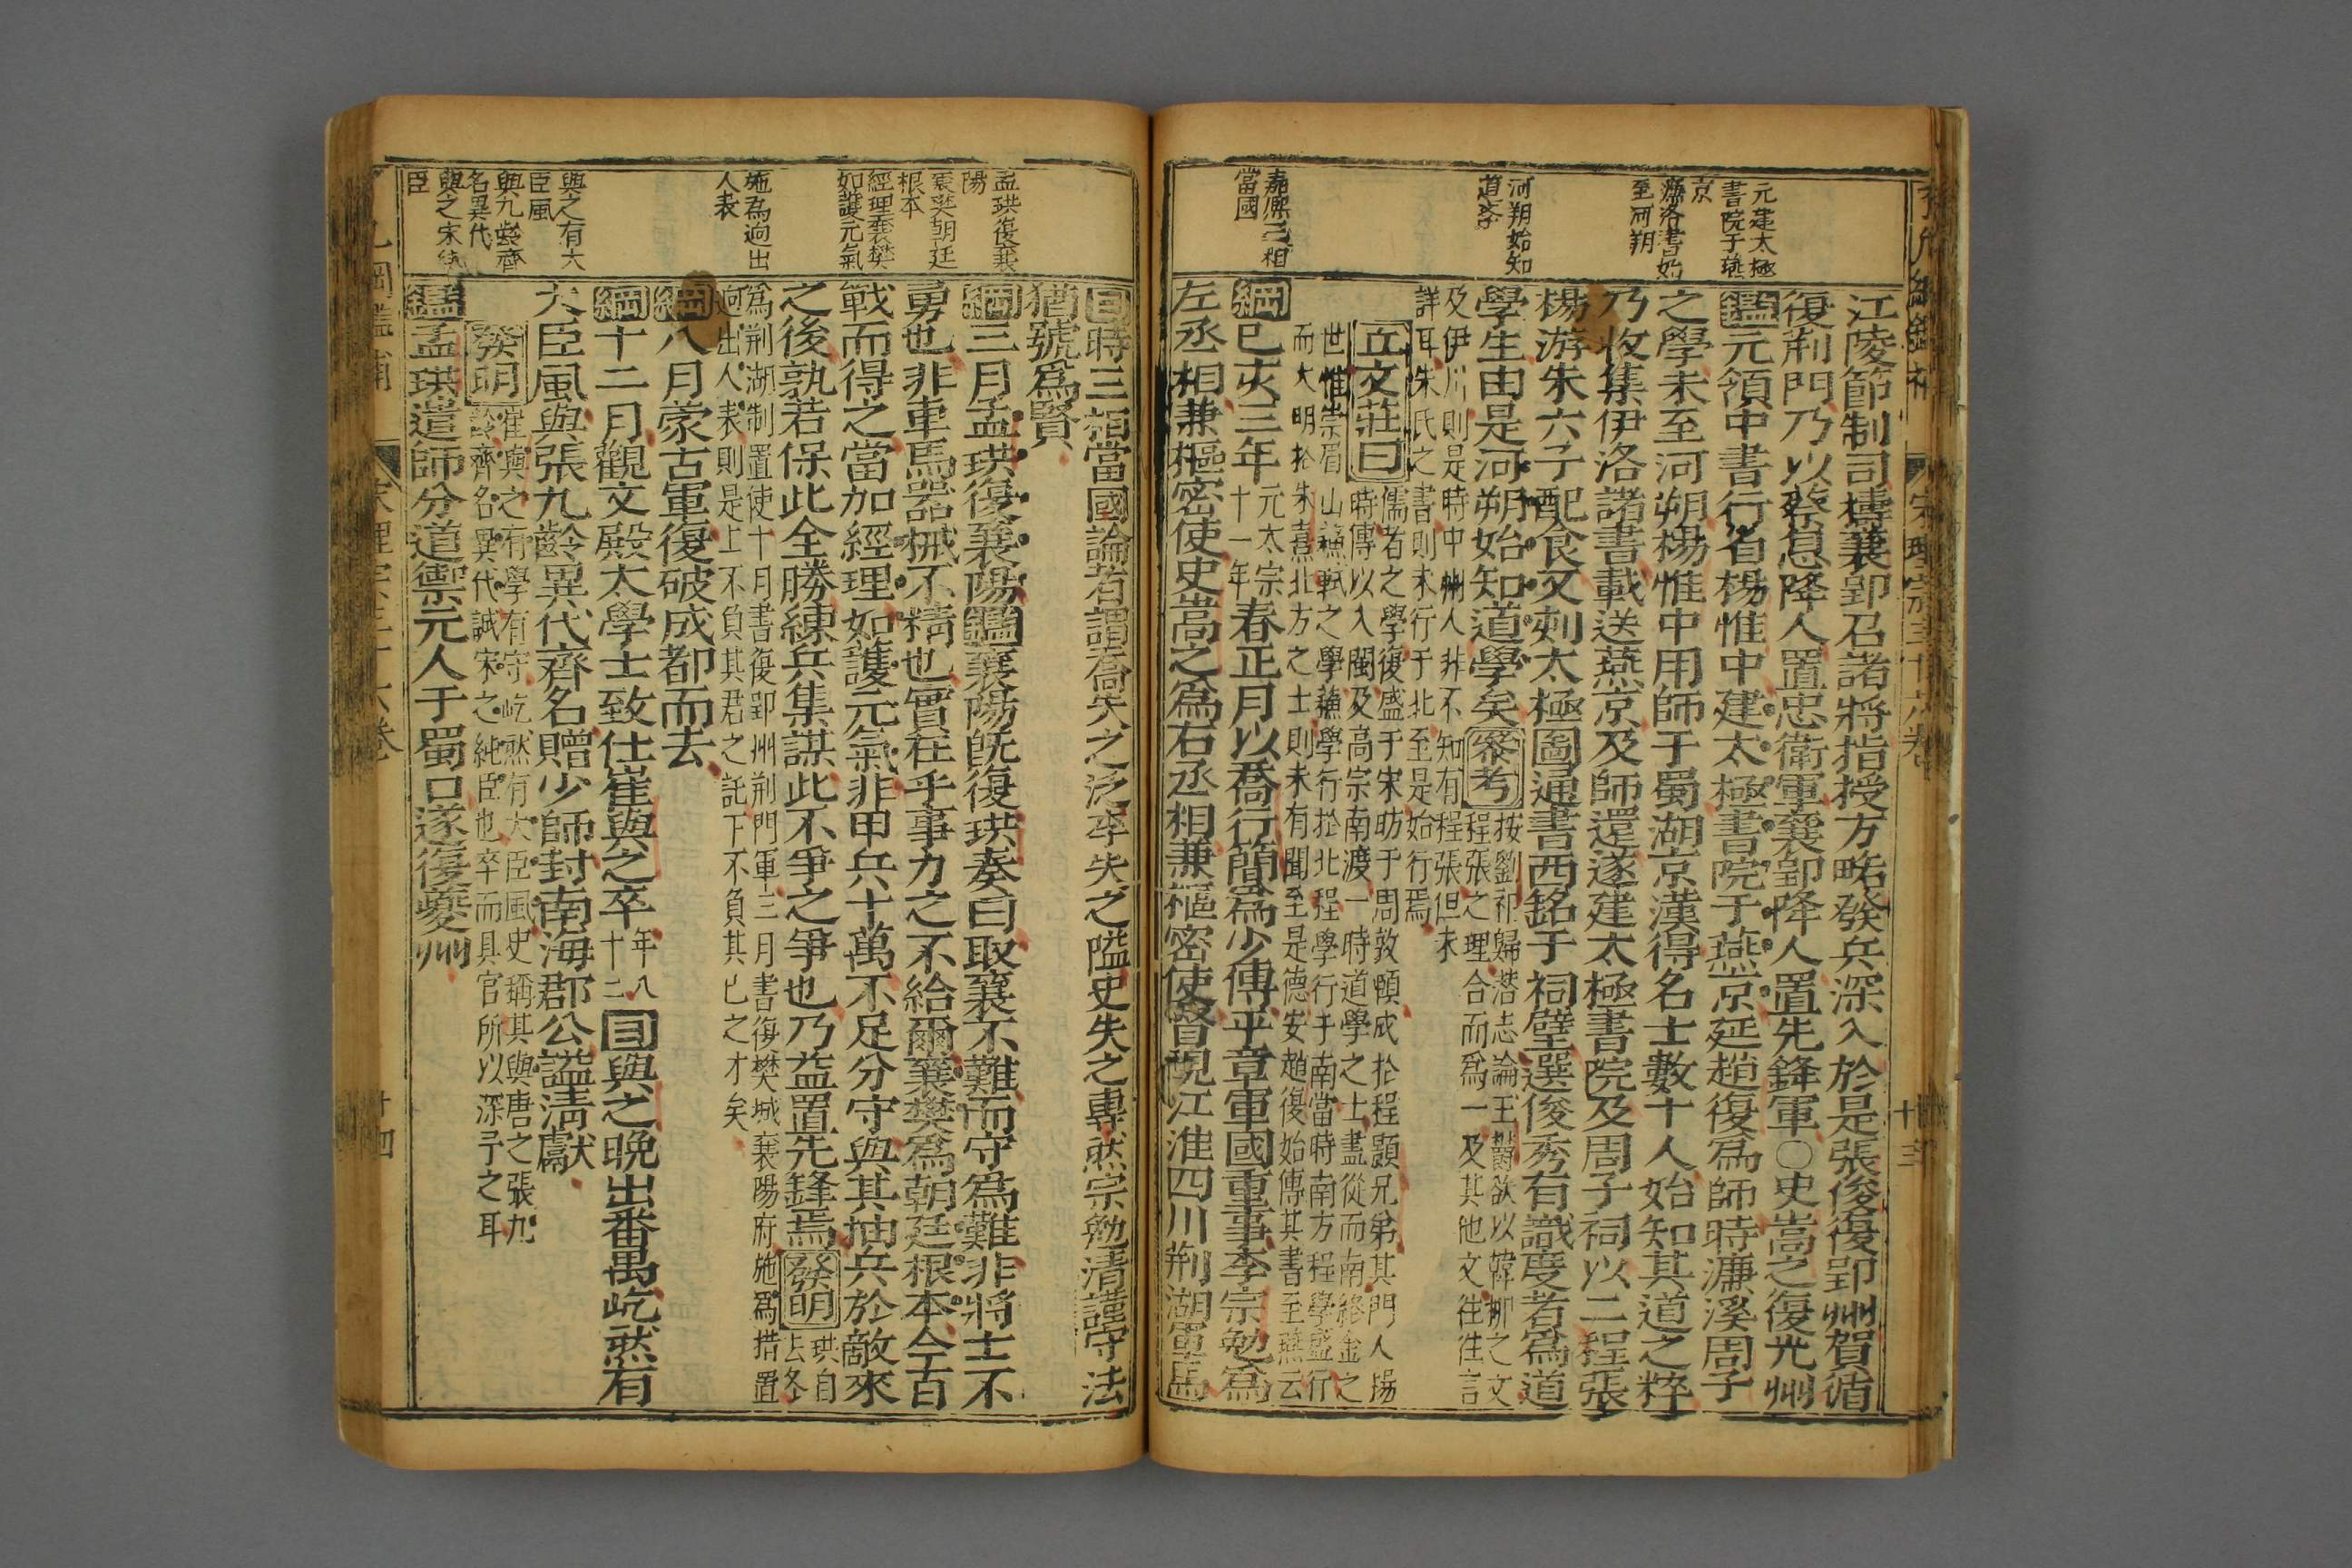 元建太極
書院于燕
京
濂洛書始
至河朔
河朔始知
道學
喬
當國
江陵節制司擣襄郢召諸將指授方略發兵深入於是張俊復郢州賀循
復荆門乃以蔡息降人置忠衛軍襄郢降人置先鋒軍○史嵩之復光州
鑑元領中書行省楊惟中建太極書院于燕京延趙復爲師時濂溪周子
之學未至河朔楊惟中用師于蜀湖京漢得名士數十人始知其道之粹
乃收集伊洛諸書載送燕京及師還遂建太極書院及周子祠以二程張
楊游朱六子配食又刻太極圖通書西銘于祠壁選俊秀有識度者爲道
學生由是河朔始知道學矣參考
按劉祁歸潛志論王欝欲以韓柳之文
程張之理合而爲一及其他文往往言
及伊川則是時中州人非不知有程張但未
詳耳朱氏之書則未行于北至是始行焉
丘文莊曰
儒者之學復盛于宋昉于周敦頤成於程顥兄弟其門人楊
時傳以入閩及高宗南渡一時道學之士盡從而南終金之
世惟崇眉山蘇軾之學蘇學行於北程學行于南當時南方程學盛行
而大明於朱熹北方之士則未有聞至是德安趙復始傳其書至燕云
綱已亥三年
元太宗
十一年
春正月以喬行簡爲少傅平章軍國重事李宗勉爲
左丞相兼樞密使史嵩之爲右丞相兼樞密使督視江淮四川荆湖軍馬
宋理宗三十六卷
十三
孟珙復襄
陽
襄樊朝廷
根本
經理襄樊
如護元氣
施爲迥出
人表
與之有大
臣風
與九齡齊
名異代
與之宋純
臣
目時三相當國論者謂喬失之泛李失之隘史失之專然宗勉清謹守法
猶號爲賢
綱三月孟珙復襄陽鑑襄陽旣復珙奏曰取襄不難而守爲難非將士不
勇也非車馬器械不精也實在乎事力之不給爾襄樊爲朝廷根本今百
戰而得之當加經理如護元氣非甲兵十萬不足分守與其抽兵於敵來
之後孰若保此全勝練兵集謀此不爭之爭也乃益置先鋒焉發明
珙自
去冬
爲荆湖制置使十月書復郢州荆門軍三月書復樊城襄陽府施爲措置
迥出人表則是上不負其君之託下不負其已之才矣
綱八月蒙古軍復破成都而去
綱十二月觀文殿大學士致仕崔與之卒
年八
十二
目與之晚出番禺屹然有
大臣風與張九齡異代齊名贈少師封南海郡公謚淸獻
發明
崔與之有學有守屹然有大臣風史稱其與唐之張九
齡齊名異代誠宋之純臣也卒而具官所以深予之耳
鑑孟珙遣師分道禦元人于蜀口遂復夔州
宋理宗三十六卷
十四